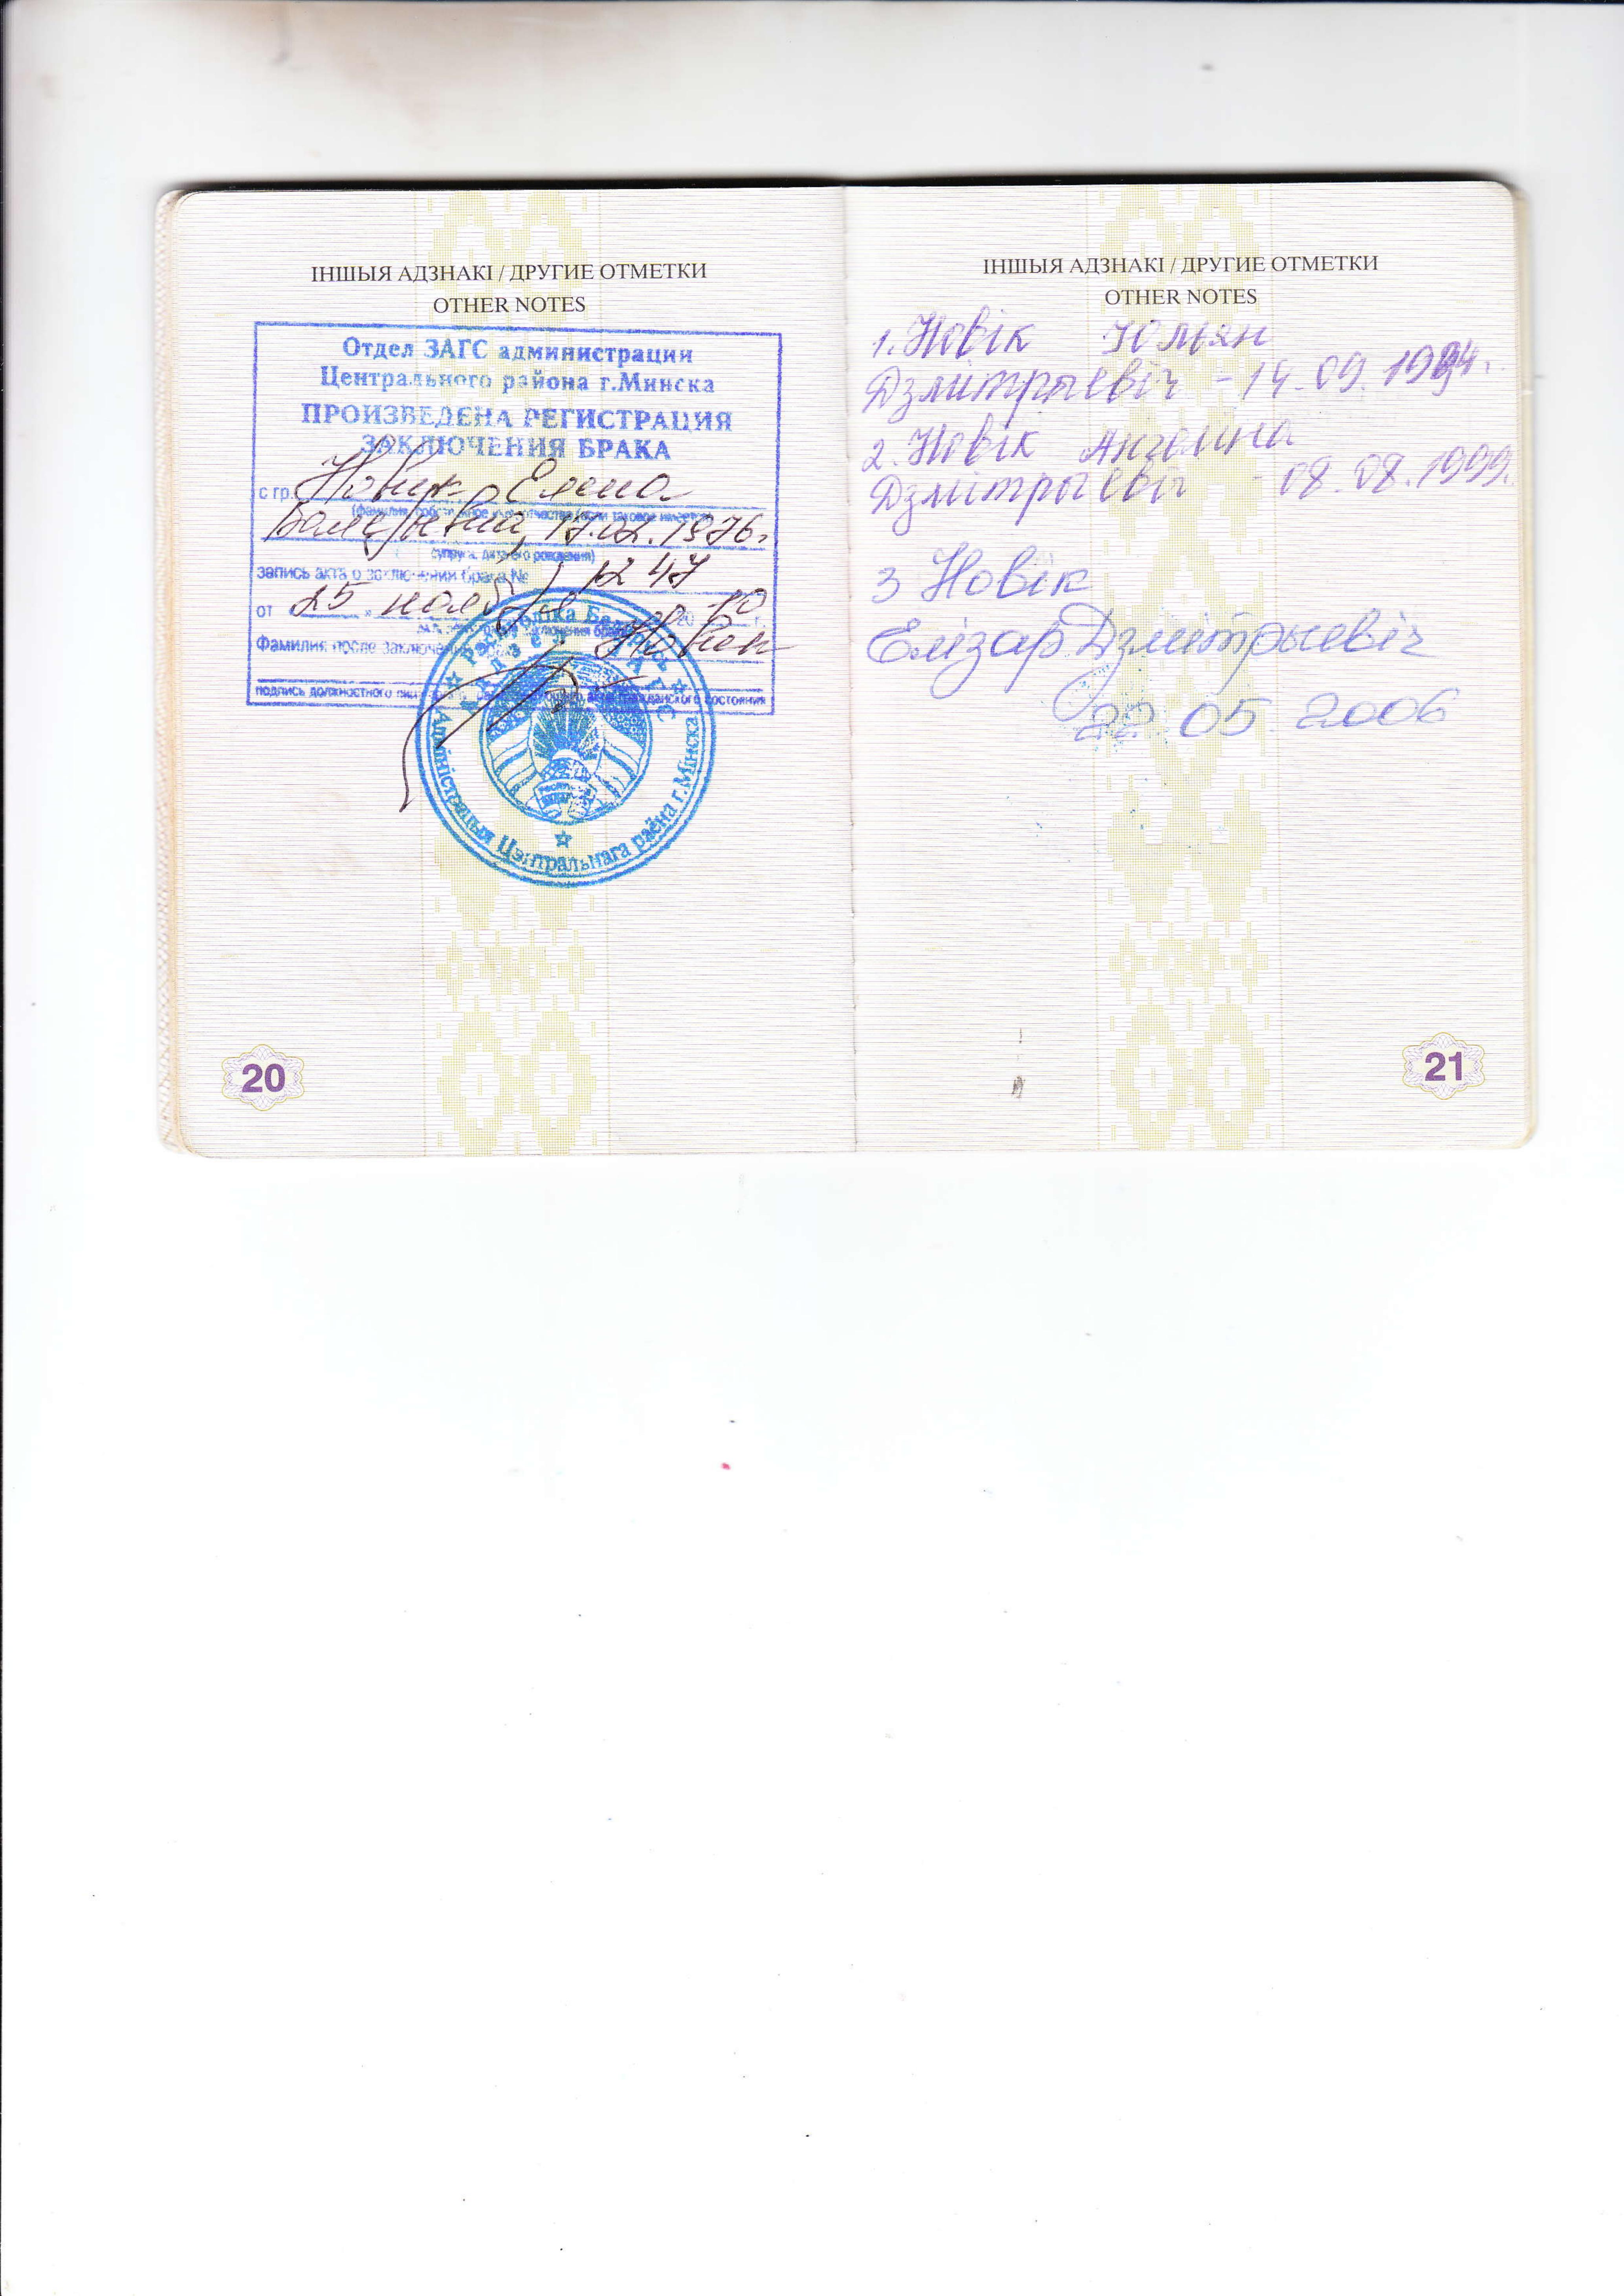 ІНШЫЯ АДЗНАКІ / ДРУГИЕ ОТМЕТКИ
OTHER NOTES
Отдел ЗАГС администрации
Центрального района г.Минска
ПРОИЗВЕДЕНА РЕГИСТРАЦИЯ
ЗАКЛЮЧЕНИЯ БРАКА
с гр. Новик Елена
(фамилия, собственное имя, отчество (если таковое имеется)
Валерьевна, 17.02.1976г
супруга, дата его рождения)
запись акта о заключении брака № 1247
от 25 » ноября 2010 г.
Фамилия после заключения брака Новик
подпись должностного гражданского состояния
Рэспубліка Беларусь
Аддзел ЗАГС
Адміністрацыя Цэнтральнага раёна г.Мінска
20
ІНШЫЯ АДЗНАКІ / ДРУГИЕ ОТМЕТКИ
OTHER NOTES
1. Новік Юльян
Дзмітрыевіч - 14.09.1994г.
2. Новік Ангеліна
Дзмітрыеві - 08.08.1999г.
3 Новік
Елізар Дзмітрыевіч
22 05 2006
21